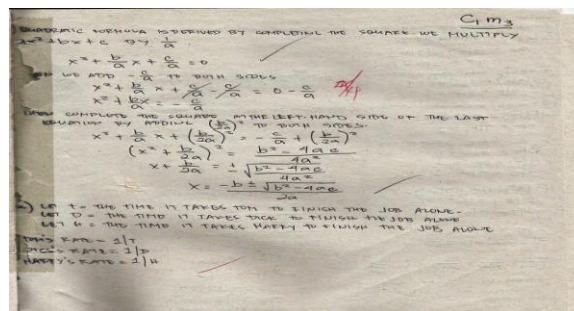 C, m 3
QUADRATIC FORMULA IS DERIVED BY COMPLETING THE SQUARE WE MULTIPLY
ax² + bx + c BY 1/a
x² + b/a x + c/a = 0
WE ADD - c/a TO BOTH SIDES
x² + b/a x + c/a - c/a = 0 - c/a
x² + bx/a = - c/a
THEN COMPLETE THE SQUARE IN THE LEFT-HAND SIDE OF THE LAST
EQUATION BY ADDING (b/2a)² TO BOTH SIDES.
x² + b/a x + (b/2a)² = - c/a + (b/2a)²
(x² + b/2a)² = b² - 4ac / 4a²
x + b/2a = ± √b² - 4ac / 4a²
x = -b ± √b² - 4ac / 2a
2) LET T = THE TIME IT TAKES TOM TO FINISH THE JOB ALONE.
LET D = THE TIME IT TAKES DICK TO FINISH THE JOB ALONE
LET H = THE TIME IT TAKES HARRY TO FINISH THE JOB ALONE
TOM'S RATE = 1/T
DICK'S RATE = 1/D
HARRY'S RATE = 1/H